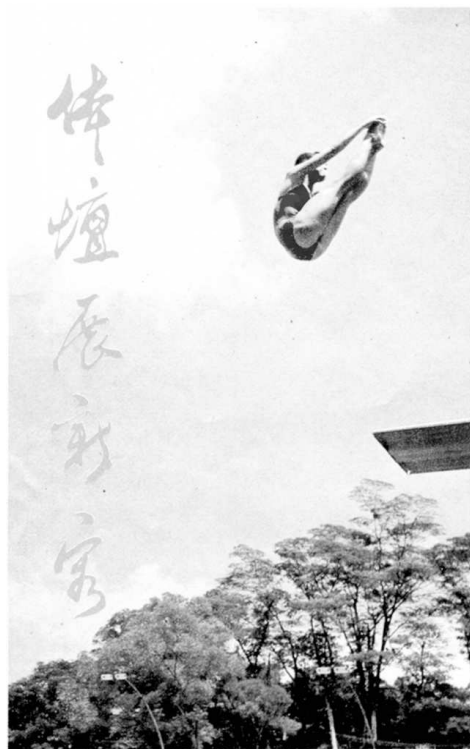 体坛展新容